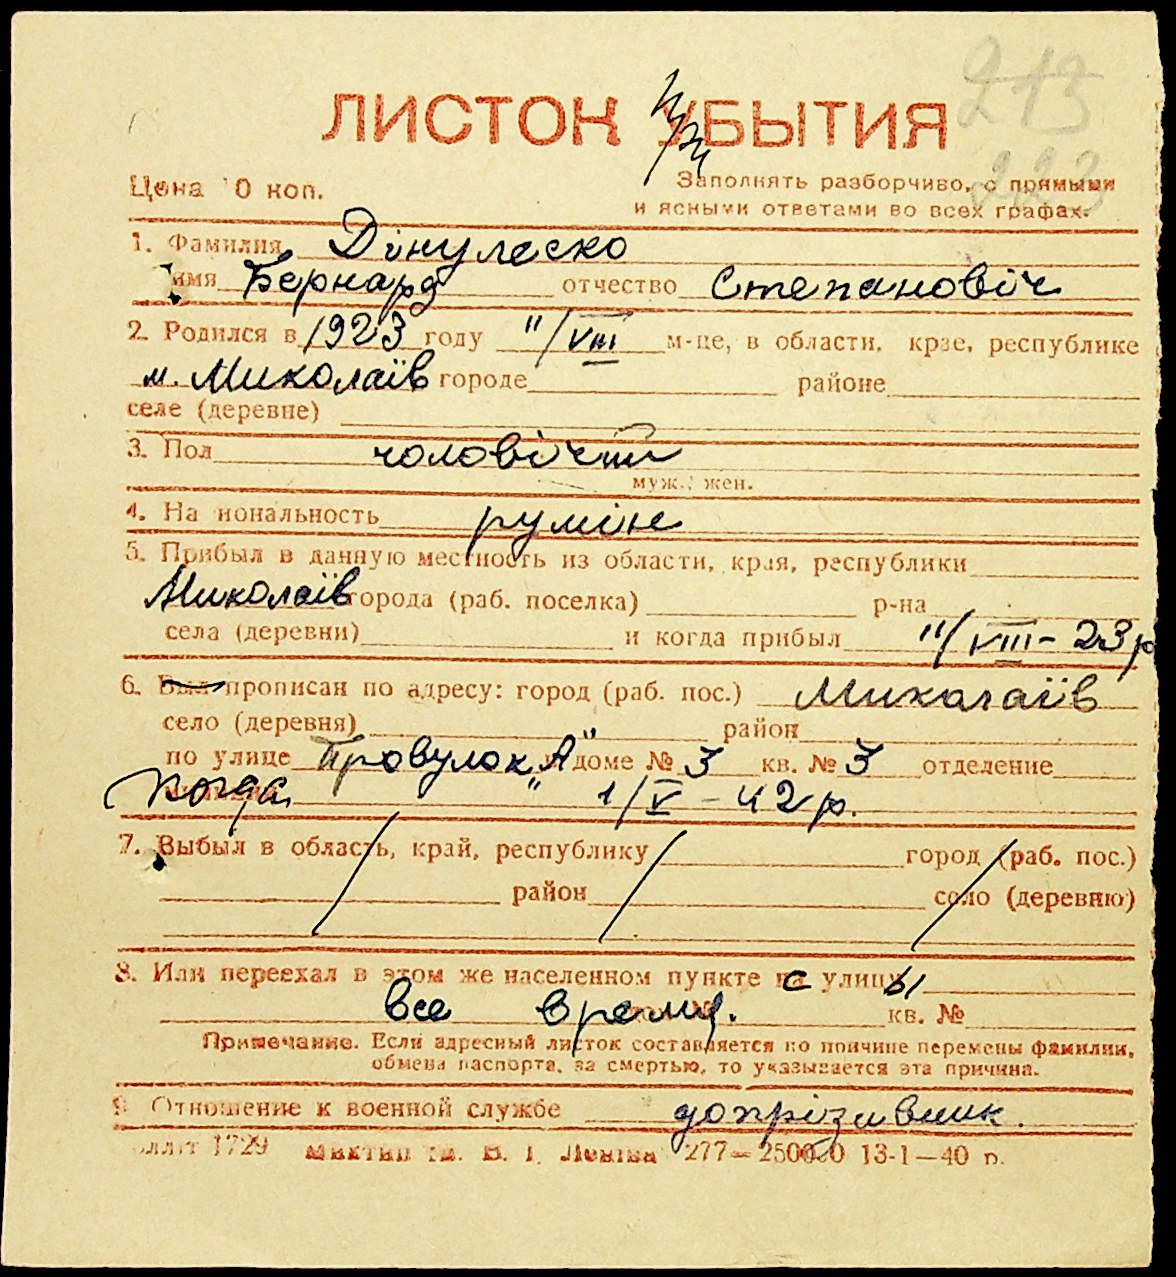 213
ЛИСТОК УБЫТИЯ
при
223
Цена 10 коп.
Заполнять разборчиво, с прямыми
и ясными ответами во всех графах.
1. Фамилия Дінулеско
имя Бернард отчество Степановіч
2. Родился в 1923 году "/VIII м-це, в области, крае, республике
м. Миколаїв городе районе
селе (деревне)
3. Пол чоловічий
муж., жен.
4. Национальность румін
5. Прибыл в данную местность из области, края, республики
Миколаїв города (раб. поселка) р-на
села (деревни) и когда прибыл "/VIII-23р
6. Был прописан по адресу: город (раб. пос.) Миколаїв
село (деревня) район
по улице Провулок "А" доме № 3 кв. № 3 отделение
когда 1/V-42р.
7. Выбыл в область, край, республику город (раб. пос.)
район село (деревню)
8. Или переехал в этом же населенном пункте с улицы
все время. кв. №
Примечание. Если адресный листок составляется по причине перемены фамилии,
обмена паспорта, за смертью, то указывается эта причина.
9. Отношение к военной службе допрізивник.
1729 им. В. І. Леніна 277—250000 13-1—40 р.